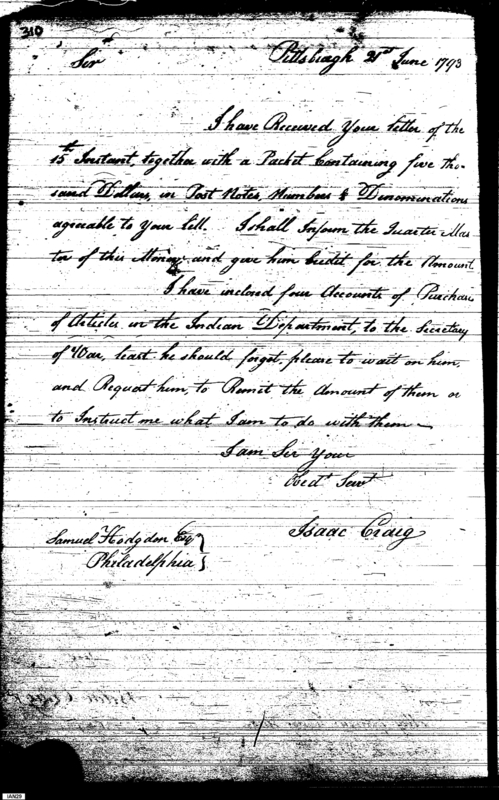 310
Pittsburgh 21st June 1793
Sir
I have Received Your letter of the
15th Instant, together with a Packet Containing five thou-
sand Dollars, in Post Notes, Numbers & Denominations
agreeable to Your Lett. I shall Inform the Quarter Mas
ter of this Money and give him Credit for the Amount
I have inclosed four Accounts of Purchase
of Articles in the Indian Department, to the Secretary
of War, least he should forget, please to wait on him,
and Request him, to Remit the Amount of them or
to Instruct me what I am to do with them
I am Sir Your
Obedt Servt
Isaac Craig
Samuel Hodgdon Esqr
Philadelphia
IAN29